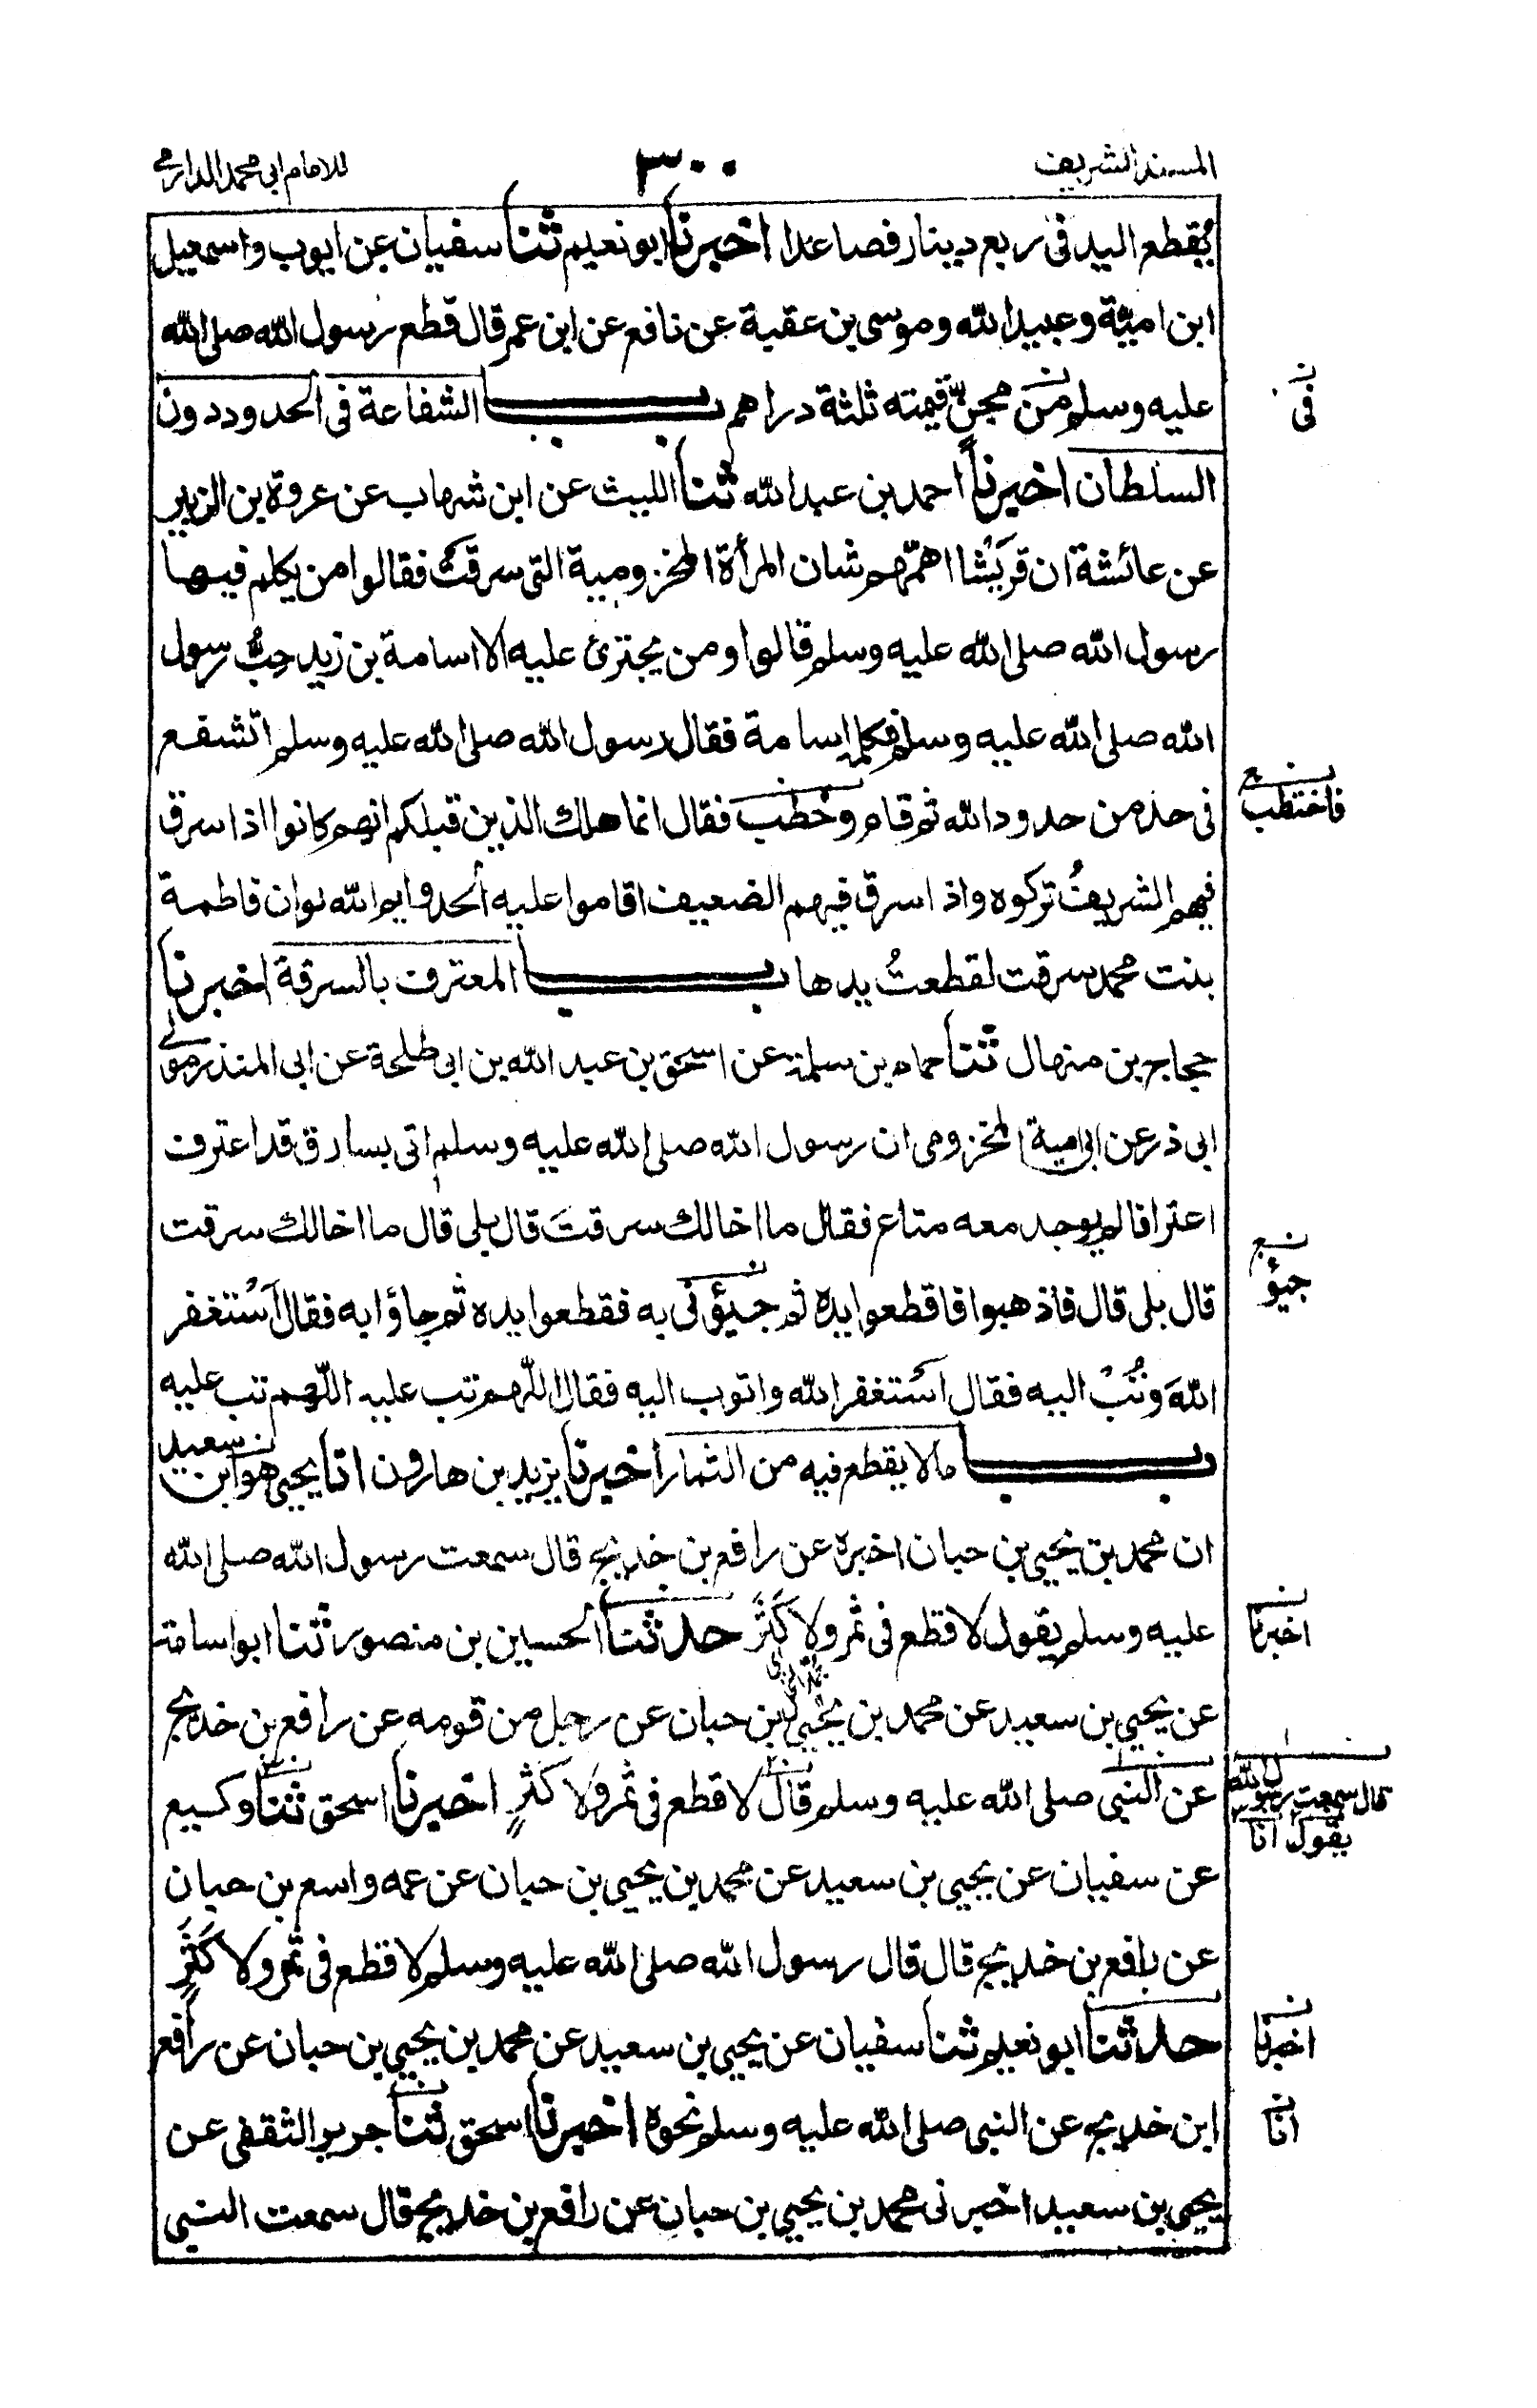 المسند الشريف ٣٠٠ للامام ابي محمد الدارمي
يقطع اليد فى ربع دينار فصاعدا اخبرنا ابو نعيم ثنا سفيان عن ايوب واسمعيل
ابن امية وعبيد الله وموسى بن عقبة عن نافع عن ابن عمر قال قطع رسول الله صلى الله
عليه وسلم من مجن قيمته ثلثة دراهم باب الشفاعة فى الحدود دون
فى
السلطان اخبرنا احمد بن عبد الله ثنا الليث عن ابن شهاب عن عروة بن الزبير
عن عائشة ان قريشا اهمّهم شان المرأة المخزومية التى سرقت فقالوا من يكلم فيها
رسول الله صلى الله عليه وسلم قالوا ومن يجترئ عليه الا اسامة بن زيد حِبُّ رسول
الله صلى الله عليه وسلم فكلمه اسامة فقال رسول الله صلى الله عليه وسلم اتشفع
فى حد من حدود الله ثم قام وخطب فقال انما هلك الذين قبلكم انهم كانوا اذا سرق
فاختطب
فيهم الشريفُ تركوه واذا سرق فيهم الضعيف اقاموا عليه الحد وايم الله لوان فاطمة
بنت محمد سرقت لقطعتُ يدها باب المعترف بالسرقة اخبرنا
حجاج بن منهال ثنا حماد بن سلمة عن اسحق بن عبد الله بن ابي طلحة عن ابي المنذر مولى
ابي ذر عن ابي امية المخزومى ان رسول الله صلى الله عليه وسلم اتى بسارق قد اعترف
اعترافا لم يوجد معه متاع فقال ما اخالك سرقتَ قال بلى قال ما اخالك سرقت
قال بلى قال فاذهبوا فاقطعوا يده ثم جيؤنى به فقطعوا يده ثم جاؤا به فقال اَسْتغفر
جيؤ
اللهَ وتُبْ اليه فقال استغفر الله واتوب اليه فقال اللّهم تب عليه اللّهم تب عليه
باب ما لا يقطع فيه من الثمار اخبرنا يزيد بن هارون انا يحيى هو ابن سعيد
ان محمد بن يحيى بن حبان اخبره عن رافع بن خديج قال سمعت رسول الله صلى الله
عليه وسلم يقول لا قطع فى ثمر ولا كَثَر حدثنا الحسين بن منصور ثنا ابو اسامة
اخبرنا
عن يحيى بن سعيد عن محمد بن يحيى بن حبان عن رجل من قومه عن رافع بن خديج
عن النبى صلى الله عليه وسلم قال لا قطع فى ثمر ولا كثرٍ اخبرنا اسحق ثنا وكيع
قال سمعت رسول الله
يقول انا
عن سفيان عن يحيى بن سعيد عن محمد بن يحيى بن حبان عن عمه واسع بن حبان
عن رافع بن خديج قال قال رسول الله صلى الله عليه وسلم لا قطع فى ثمر ولا كَثَرٍ
حدثنا ابو نعيم ثنا سفيان عن يحيى بن سعيد عن محمد بن يحيى بن حبان عن رافع
اخبرنا
ابن خديج عن النبى صلى الله عليه وسلم نحوه اخبرنا اسحق ثنا جرير الثقفى عن
انا
يحيى بن سعيد اخبرنى محمد بن يحيى بن حبان عن رافع بن خديج قال سمعت النبى